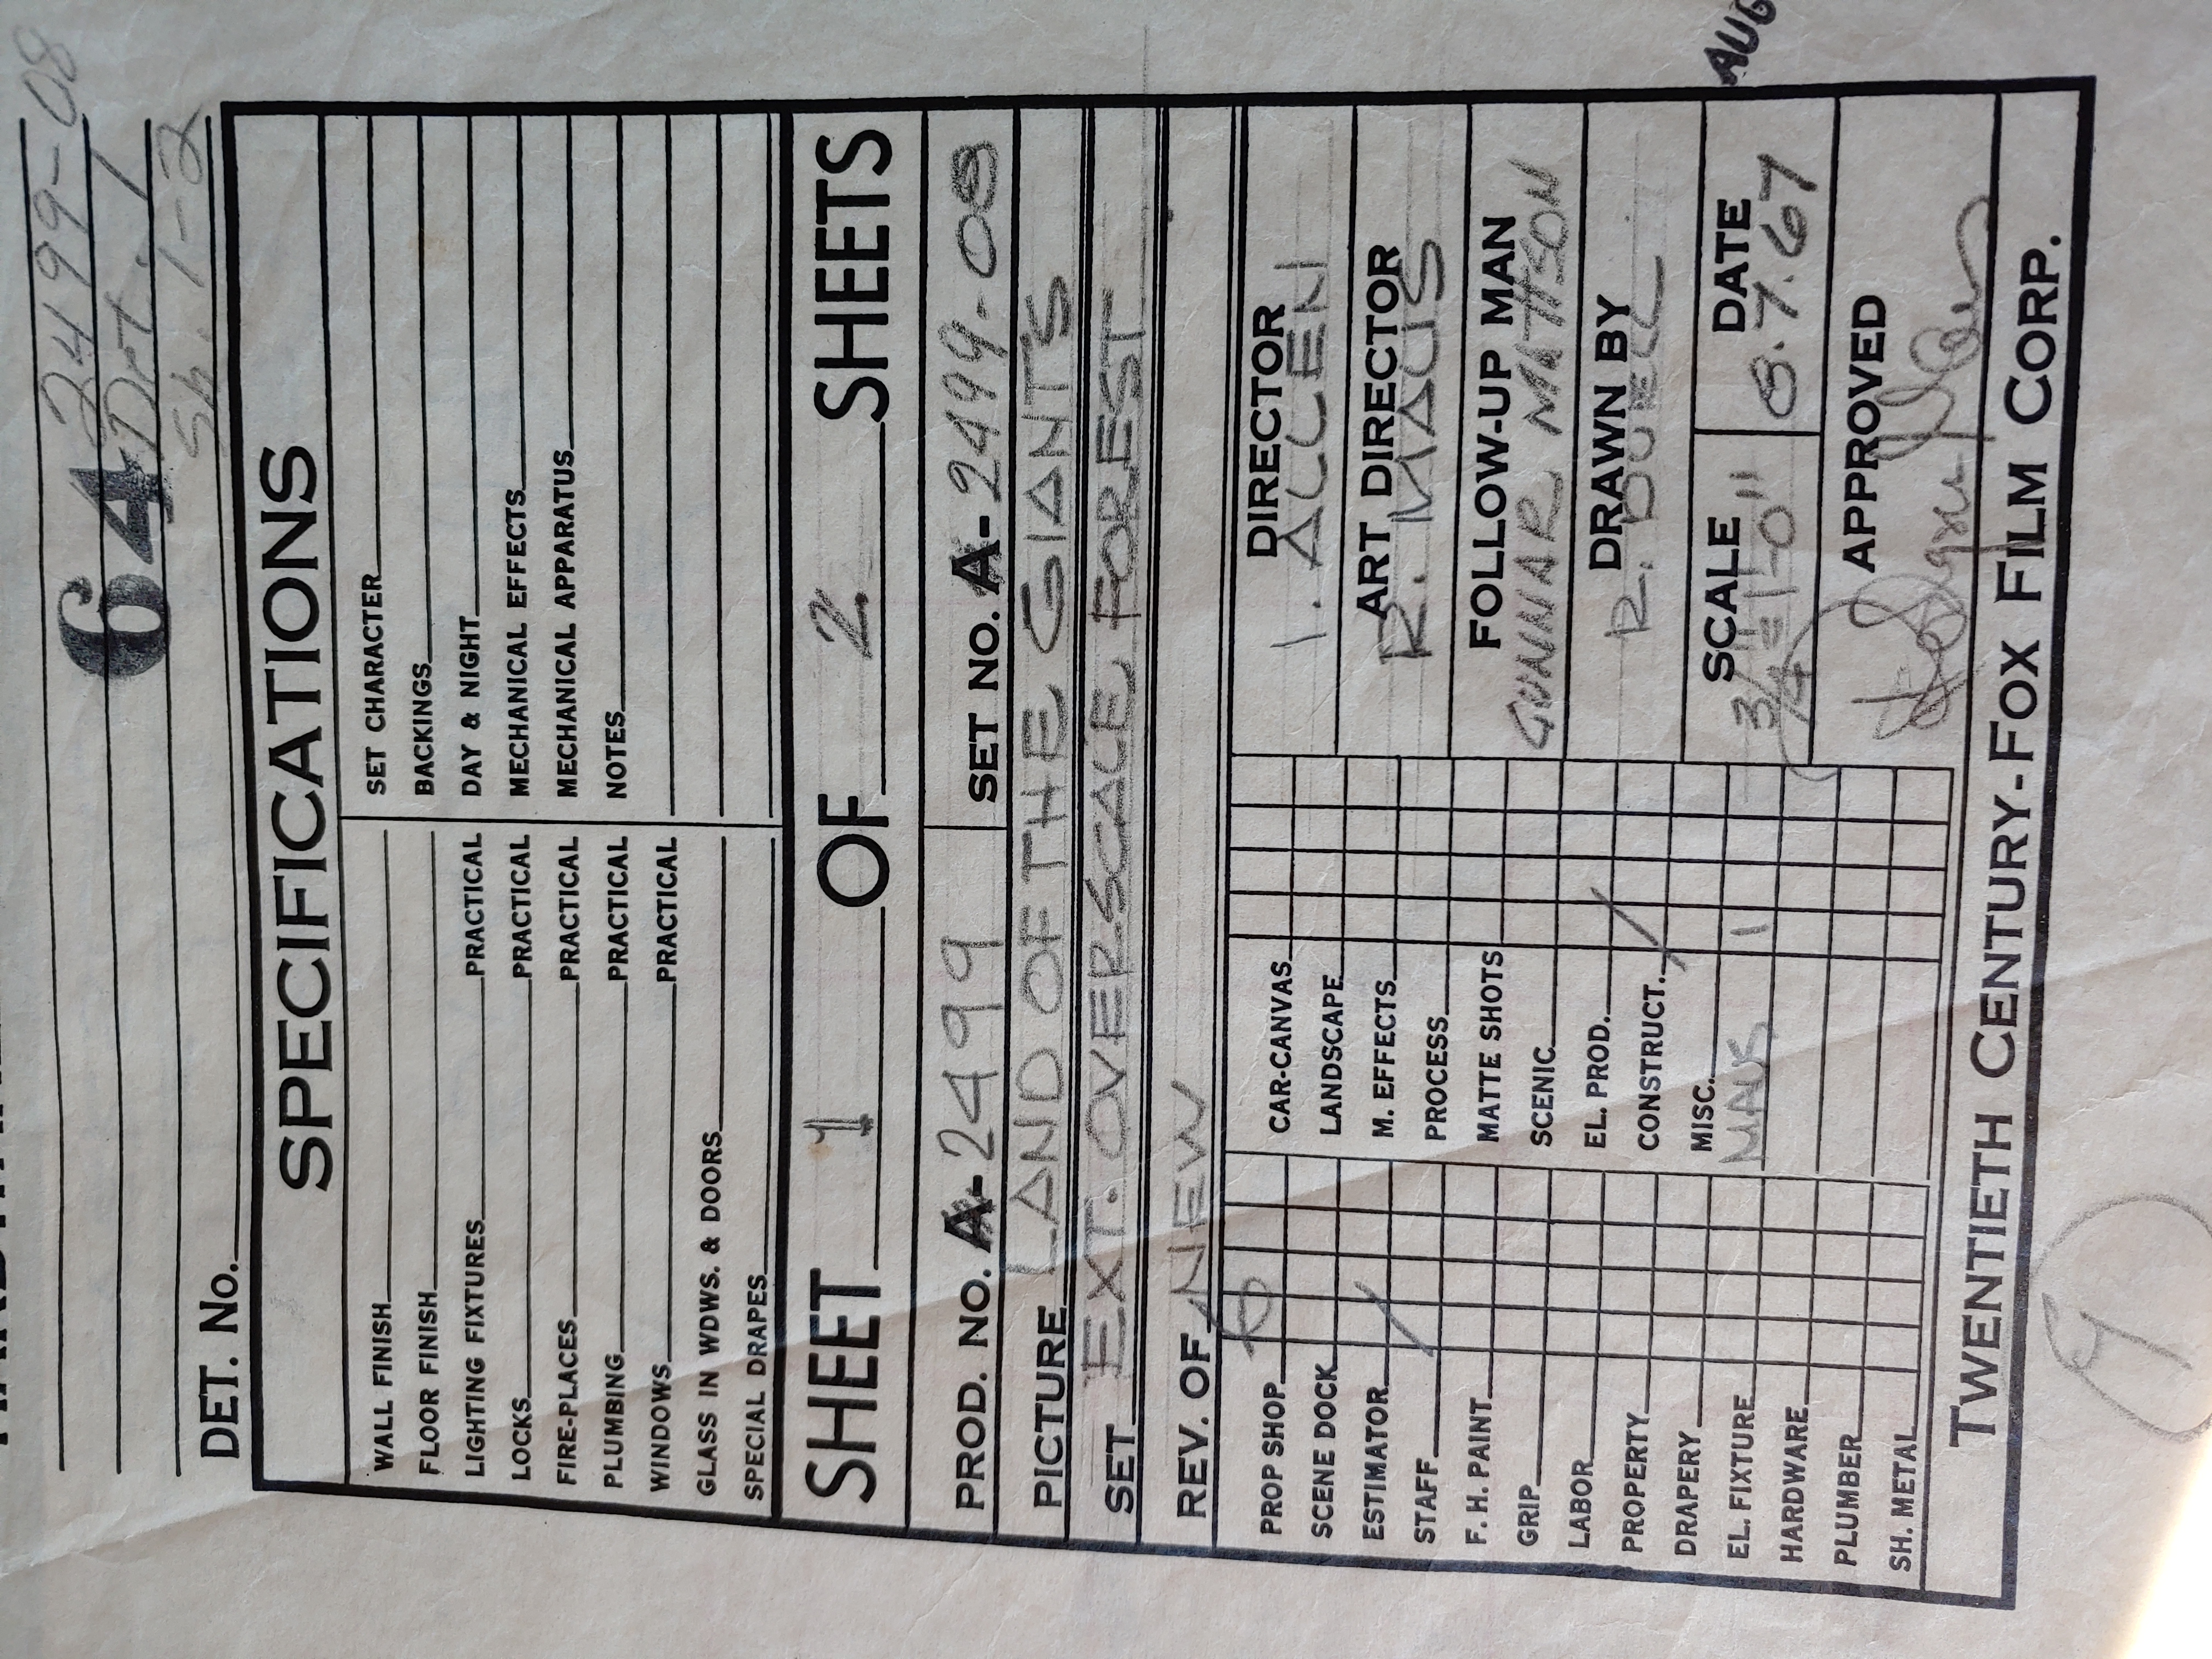 2499-08
64 Det. 1
Sh. 1-2
DET. No.
SPECIFICATIONS
WALL FINISH
FLOOR FINISH
LIGHTING FIXTURES PRACTICAL
LOCKS PRACTICAL
FIRE-PLACES PRACTICAL
PLUMBING PRACTICAL
WINDOWS PRACTICAL
GLASS IN WDWS. & DOORS
SPECIAL DRAPES
SET CHARACTER
BACKINGS
DAY & NIGHT
MECHANICAL EFFECTS
MECHANICAL APPARATUS
NOTES
SHEET 1 OF 2 SHEETS
PROD. NO. A-2499 SET NO. A-2499-08
PICTURE LAND OF THE GIANTS
SET EXT. OVERSCALE FOREST
REV. OF NEW
PROP SHOP
SCENE DOCK
ESTIMATOR
STAFF
F. H. PAINT
GRIP
LABOR
PROPERTY
DRAPERY
EL. FIXTURE
HARDWARE
PLUMBER
SH. METAL
CAR-CANVAS
LANDSCAPE
M. EFFECTS
PROCESS
MATTE SHOTS
SCENIC
EL. PROD.
CONSTRUCT.
MISC.
MAUS 1
DIRECTOR
I. ALLEN
ART DIRECTOR
R. MAUS
FOLLOW-UP MAN
GUNNAR MATTSON
DRAWN BY
R. DUELL
SCALE DATE
3/4"=1'-0" 8.7.67
AUG
APPROVED
TWENTIETH CENTURY-FOX FILM CORP.